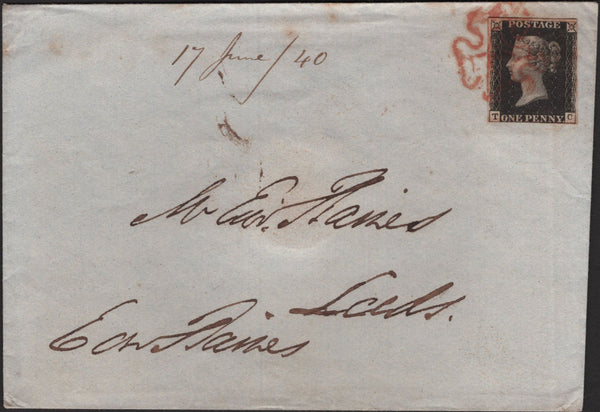 17 June/40
POSTAGE
T ONE PENNY C
Mr Edw. Baines
Leeds.
Edw Baines